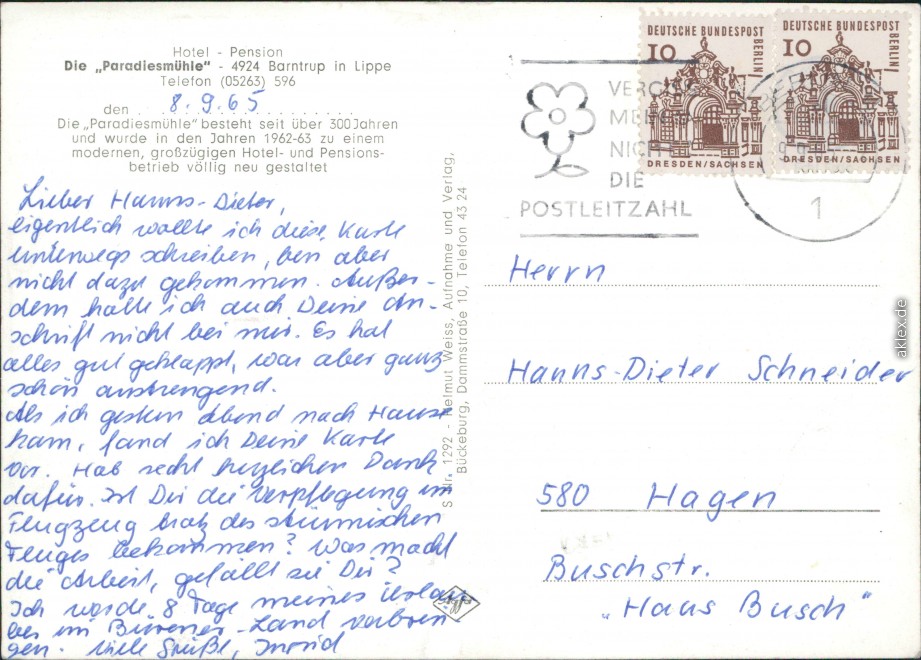 Hotel - Pension
Die „Paradiesmühle" - 4924 Barntrup in Lippe
Telefon (05263) 596
den 8.9.65
Die „Paradiesmühle" besteht seit über 300 Jahren
und wurde in den Jahren 1962-63 zu einem
modernen, großzügigen Hotel- und Pensions-
betrieb völlig neu gestaltet
Lieber Hanns-Dieter,
eigentlich wollte ich diese Karte
unterwegs schreiben, bin aber
nicht dazu gekommen. Außer-
dem hatte ich auch Deine An-
schrift nicht bei mir. Es hat
alles gut geklappt, war aber ganz
schön anstrengend.
Als ich gestern Abend nach Hause
kam, fand ich Deine Karte
vor. Hab recht herzlichen Dank
dafür. Ist Dir die Verpflegung im
Flugzeug trotz des stürmischen
Fluges bekommen? Was macht
die Arbeit, gefällt sie Dir?
Ich werde 8 Tage meines Urlau
bes im Bürener-Land verbrin
gen. Viele Grüße, Ingrid
1292 - Helmut Weiss, Aufnahme und Verlag,
Bückeburg, Dammstraße 10, Telefon 43 24
DEUTSCHE BUNDESPOST
BERLIN
10
DRESDEN/SACHSEN
DEUTSCHE BUNDESPOST
BERLIN
10
DRESDEN/SACHSEN
NICHT
DIE
POSTLEITZAHL
1
Herrn
Hanns-Dieter Schneider
580 Hagen
Buschstr.
„Haus Busch"
aklex.de